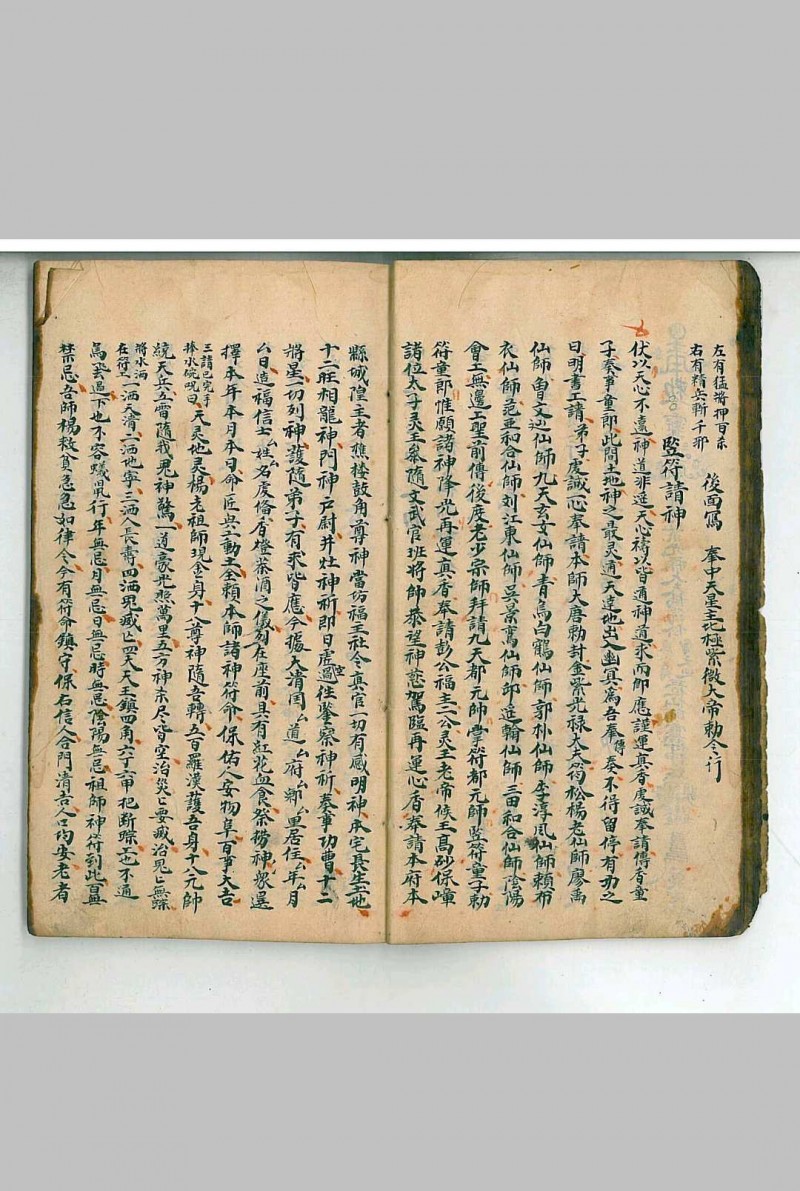 左有猛將押百杀
右有精兵斬千邪
後面寫 奉中天星主北極紫微大帝勅令行
監符請神
伏以天心不遠神道非遥天心禱以皆通神道求而即應謹運真香虔誠奉請傳香童
子奏事童郎此間土地神之最灵通天達地出入幽冥為吾奉傳奏不得留停有功之
日明書工請弟子虔誠心奉請本師大唐勅封金紫光禄大夫筠松楊老仙師廖禹
仙師曾文辿仙師九天玄女仙師青烏白鶴仙師郭朴仙師李淳風仙師賴布
衣仙師范亚和合仙師刘江東仙師吴景鸞仙師邱延翰仙師三田和合仙師陰陽
會上無邊上聖前傳後度老少宗師拜請九天都元帥掌符都元帥監符童子勅
符童郎惟願諸神降光再運真香奉請彭公福主三公灵王老帝候王昌砂保嶂
諸位太子灵王案隨文武官班將師恭望神慈駕臨再運心香奉請本府本
縣城隍主者樵楼鼓角尊神當坊福王社令真官一切有感明神本宅長生土地
十二旺相龍神門神户尉井灶神祈即日虚空過往鉴察神祈奏事功曹十二
將星一切列神護隨弟子有求皆應今據大清囯厶道厶府厶鄉厶里居住厶年厶月
厶日造福信士厶姓厶名虔俻香燈茶酒之儀列在座前具有紅花血食祭撈神衆選
擇本年本月本日命匠兴工動土全賴本師諸神符命保佑人安物阜百事大吉
三請已完手
捧水碗呪曰
天灵地灵楊老祖師現金身十八尊神隨吾轉五百羅漢護吾身十八元帥
繞天兵五雷隨我鬼神驚一道豪光照萬里五方神杀尽皆空治災災要滅治鬼鬼無踪
將水洒
在符上
一洒天清二洒地寧三洒人長壽四洒鬼滅亡四大天王鎮四角六丁六甲把断踪上也不通
鳥飛過下也不容蟻䑕行年無忌月無忌日無忌時無忌陰陽無忌祖師神符到此百
禁忌吾師楊救貧急急如律令今有符命鎮守保右信人合門清吉人口均安老者